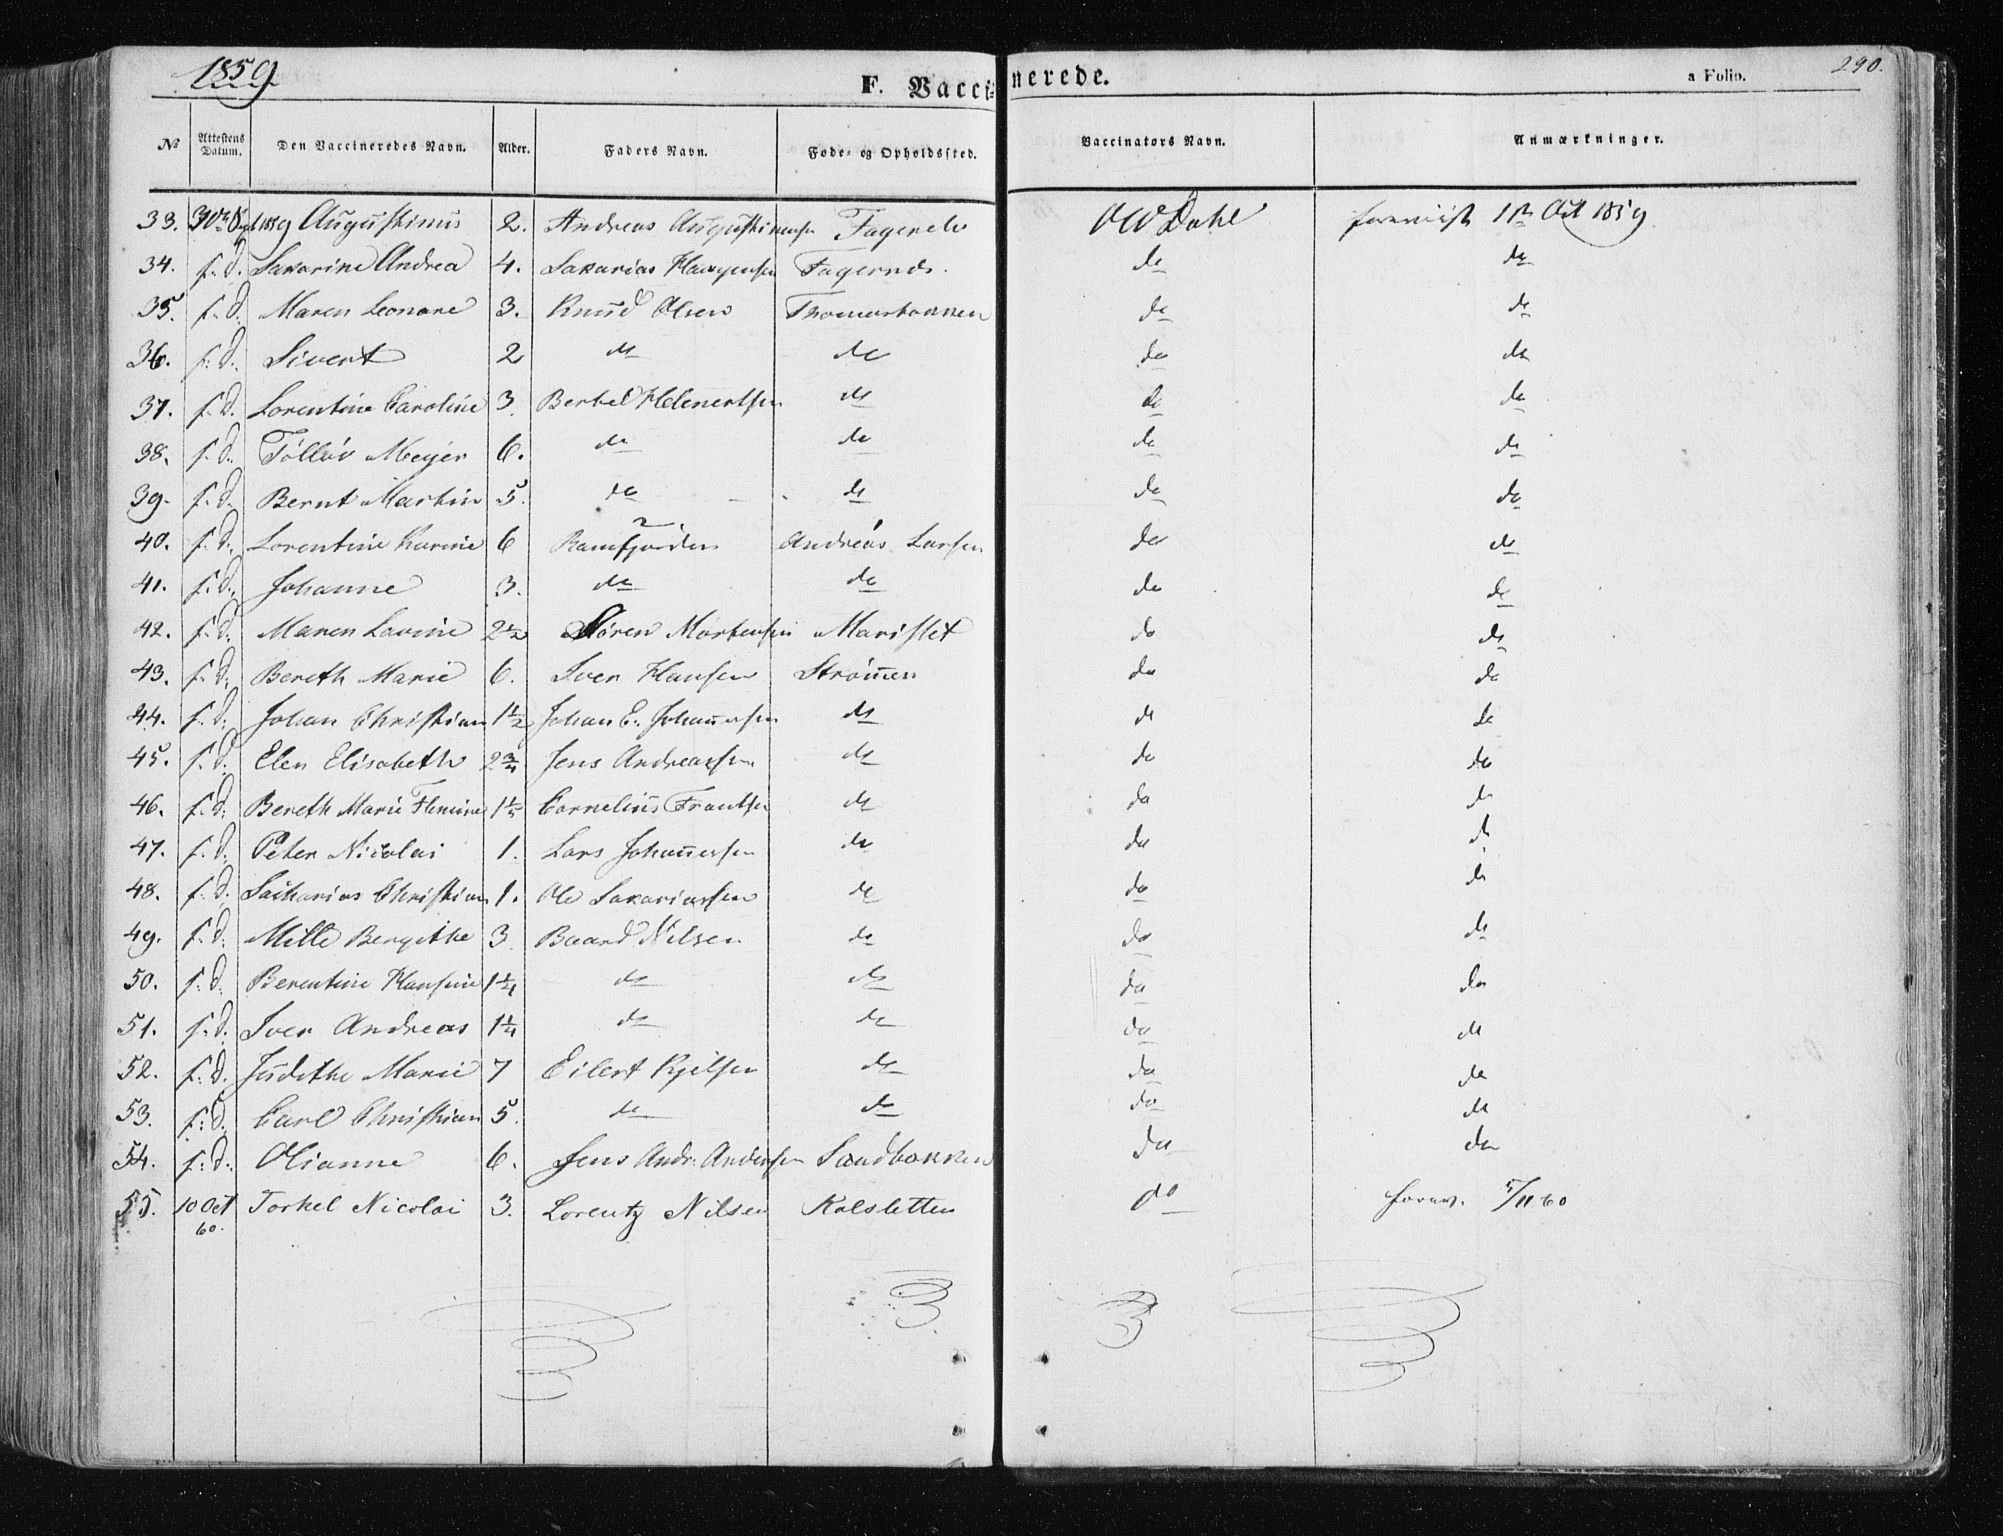 1859
F. Vaccinerede.
a Folio. 290.
№ Attestens Datum. Den Vaccineredes Navn. Alder. Faders Navn. Føde- og Opholdssted. Vaccinators Navn. Anmærkninger.
33. 30te Sept 1859 Augustinus 2. Andreas Augustinussen Fagernes Ole Dahl foreviist 1ste Oct 1859
34. s. d. Sakarine Andrea 4. Sakarias Haagensen Fagernes. do do
35. s. d. Maren Leonare 3. Knud Olsen Thomasbakken do do
36. s. d. Sivert 2 do do do do
37. s. d. Lorentine Caroline 3. Berhel Helmertsen do do do
38. s. d. Tollev Meyer 6. do do do do
39. s. d. Bernt Martin 5. do do do do
40. s. d. Lorentine Karine 6 Ramfjorden 2 Andreas Larsen do do
41. s. d. Johanne 3. do do do do
42. s. d. Maren Lovine 2½ Søren Mortensen Marislet do do
43. s. d. Bereth Marie 6. Iver Hansen Strømen do do
44. s. d. Johan Christian 1½ Johan E. Johannesen do do do
45. s. d. Elen Elisabeth 2¾ Jens Andreassen do do do
46. s. d. Bereth Marie Flemine 1½ Cornelius Frantsen do do do
47. s. d. Peter Nicolai 1. Lars Johannesen do do d
48. s. d. Sacharias Christian 1. Ole Sakariassen do do do
49. s. d. Mille Bergithe 3. Baard Nilsen do do do
50. s. d. Berentine Hansine 1¼ do do do do
51. s. d. Iver Andreas 1¼ do do do do
52. s. d. Judithe Marie 7 Eilert Kjelsen do do do
53. s. d. Carl Christian 5. do do do do
54. s. d. Olianne 6. Jens Andr. Andersen Sandbakken do do
55. 10 Oct 60. Torkel Nicolai 3. Lorentz Nilsen Kolsletten do forev. 5/11 60